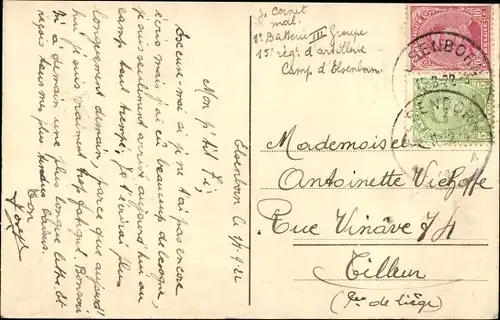 Elsenborn le 7/9-22
Mon p'tit Fi
Excuse-moi si je ne t'ai pas encore
écris mais j'ai eu beaucoup de besogne,
je suis seulement arrivé aujourd'hui au
camp tout trempé, je t'écrirai plus
longuement demain, parce que aujourd'
hui je suis vraiment trop fatigué. Bonsoir
Fi à demain une plus longue lettre. Et
reçois tous mes plus tendres baisers.
Ton
J. Cornet
mal.
1e Batterie III Groupe
15e régt d'artillerie
Camp d'Elsenborn.
Mademoiselle
Antoinette Vieghoffe
Rue Vinâve 74
Tilleur
(Pce de liège)
ELSENBORN
ELSENBORN